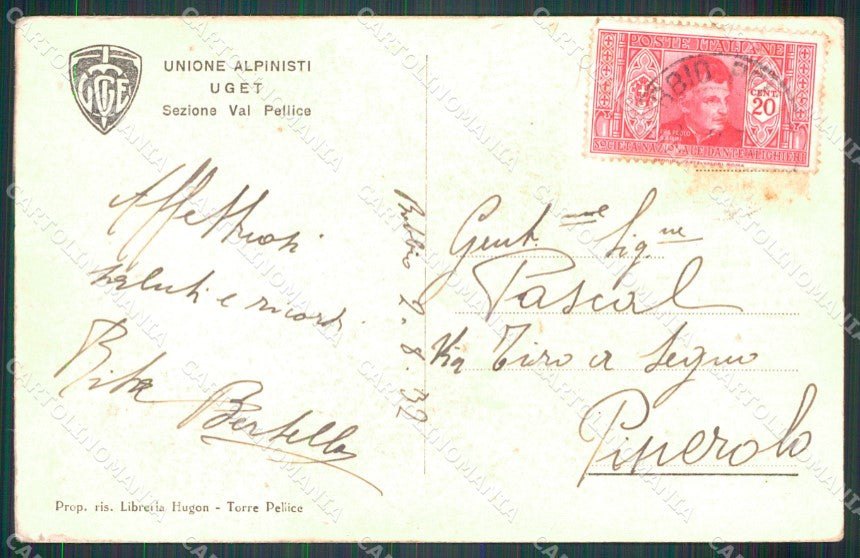 UNIONE ALPINISTI
UGET
Sezione Val Pellice
Affettuosi
saluti e ricordi
Rita Bertella
Bobbio 2.8.32
Prop. ris. Libreria Hugon - Torre Pellice
POSTE ITALIANE
CENT. 20
SOCIETÀ NAZIONALE DANTE ALIGHIERI
Gent.me Sig.ne
Pascal
Via Tiro a Segno
Pinerolo
CARTOLINOMANIA